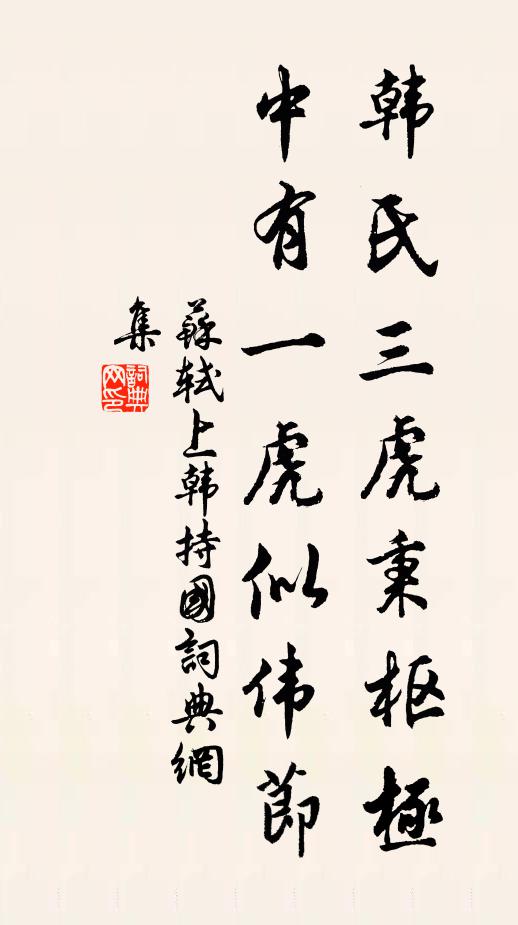 韩氏三虎秉枢極
中有一虎似伟節
蘇軾上韩持國詞典網
集
詞典
网印